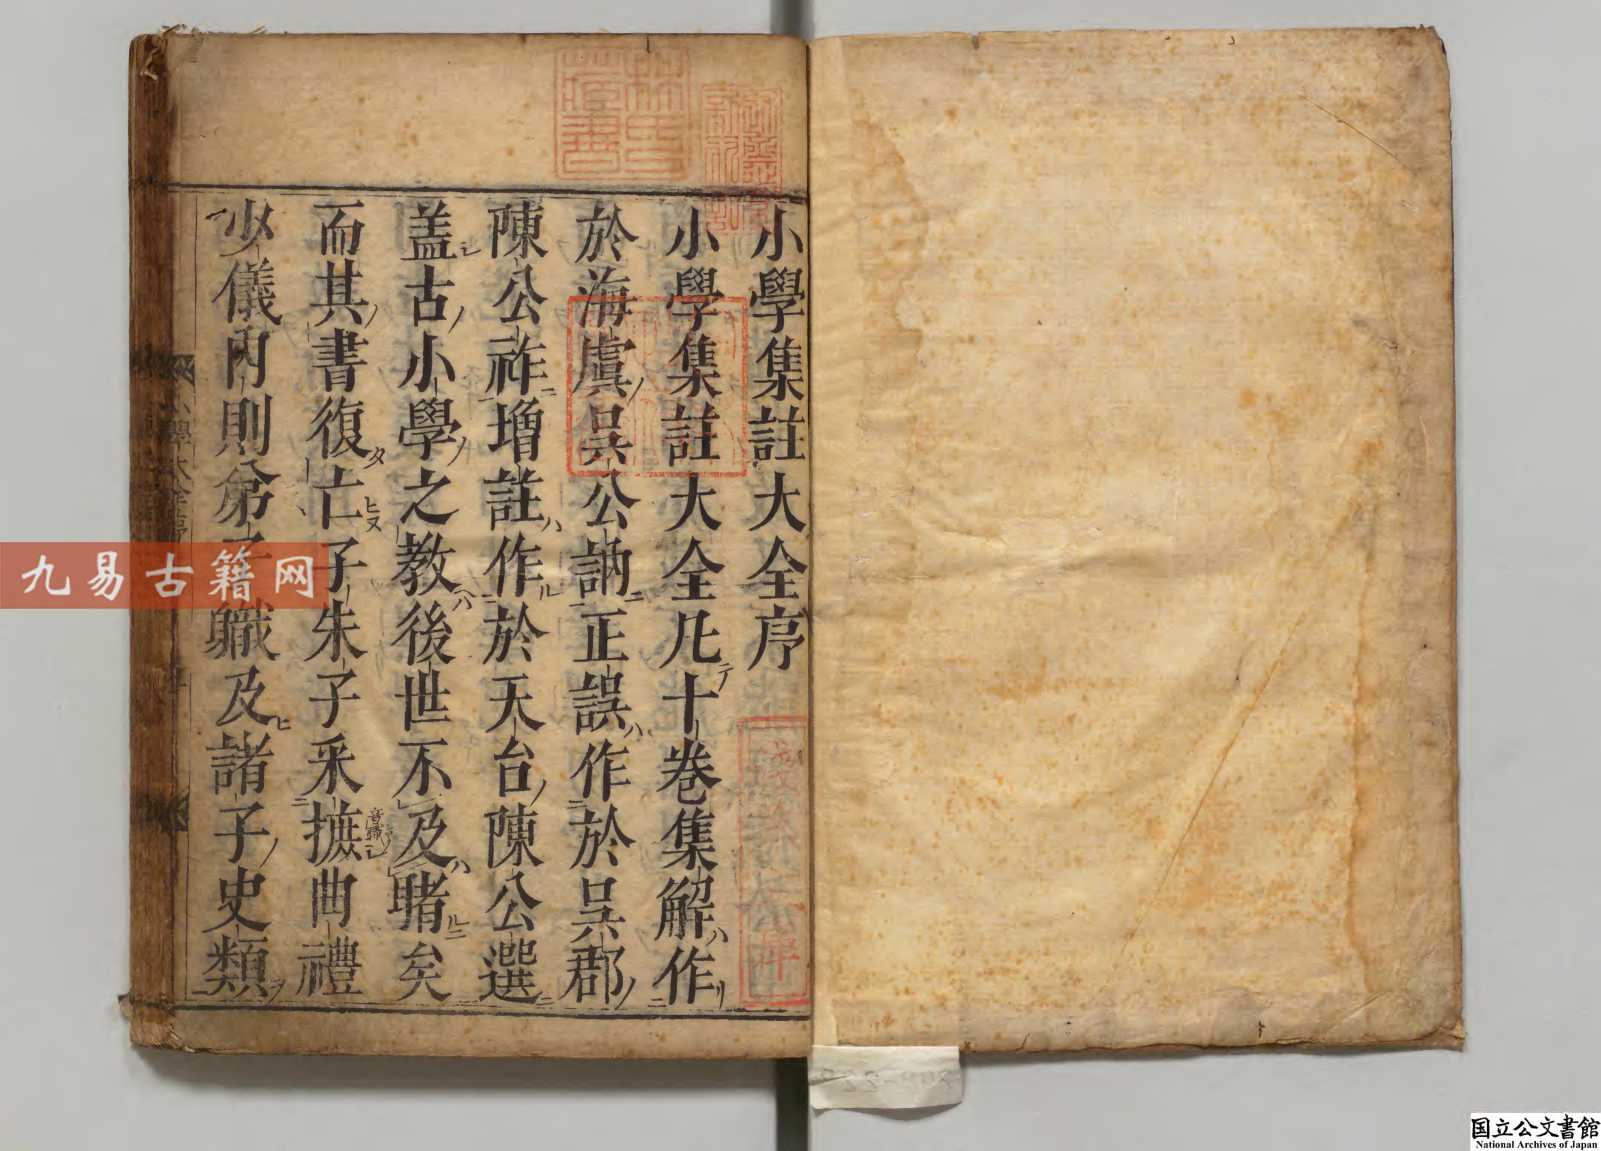 小學集註大全序
小學集註大全凡十卷集解作
於海虞吳公訥正誤作於吳郡
陳公祚增註作於天台陳公選
盖古小學之教後世不及睹矣
而其書復亡子朱子采摭曲禮
少儀內則弟子職及諸子史類
林氏藏書
九易古籍网
国立公文書館
National Archives of Japan